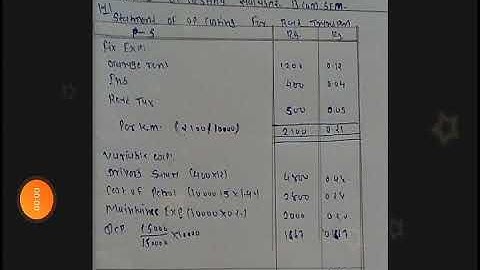 Statement of op costing for Road Transport
P-S Rs Rs
Fix Exp:
Garage Rent 1200 0.12
Ins 400 0.04
Road Tax 500 0.05
Per k.m. (2100/10000) 2100 0.21
Variable exp:
Drivers (400x12) 4800 0.48
Cost of Petrol (10000/5x1.44) 2800
Maintaines Exp (10000x0.2) 2000 0.20
DEP 15000/150000 x10000 1667 0.167
00:00